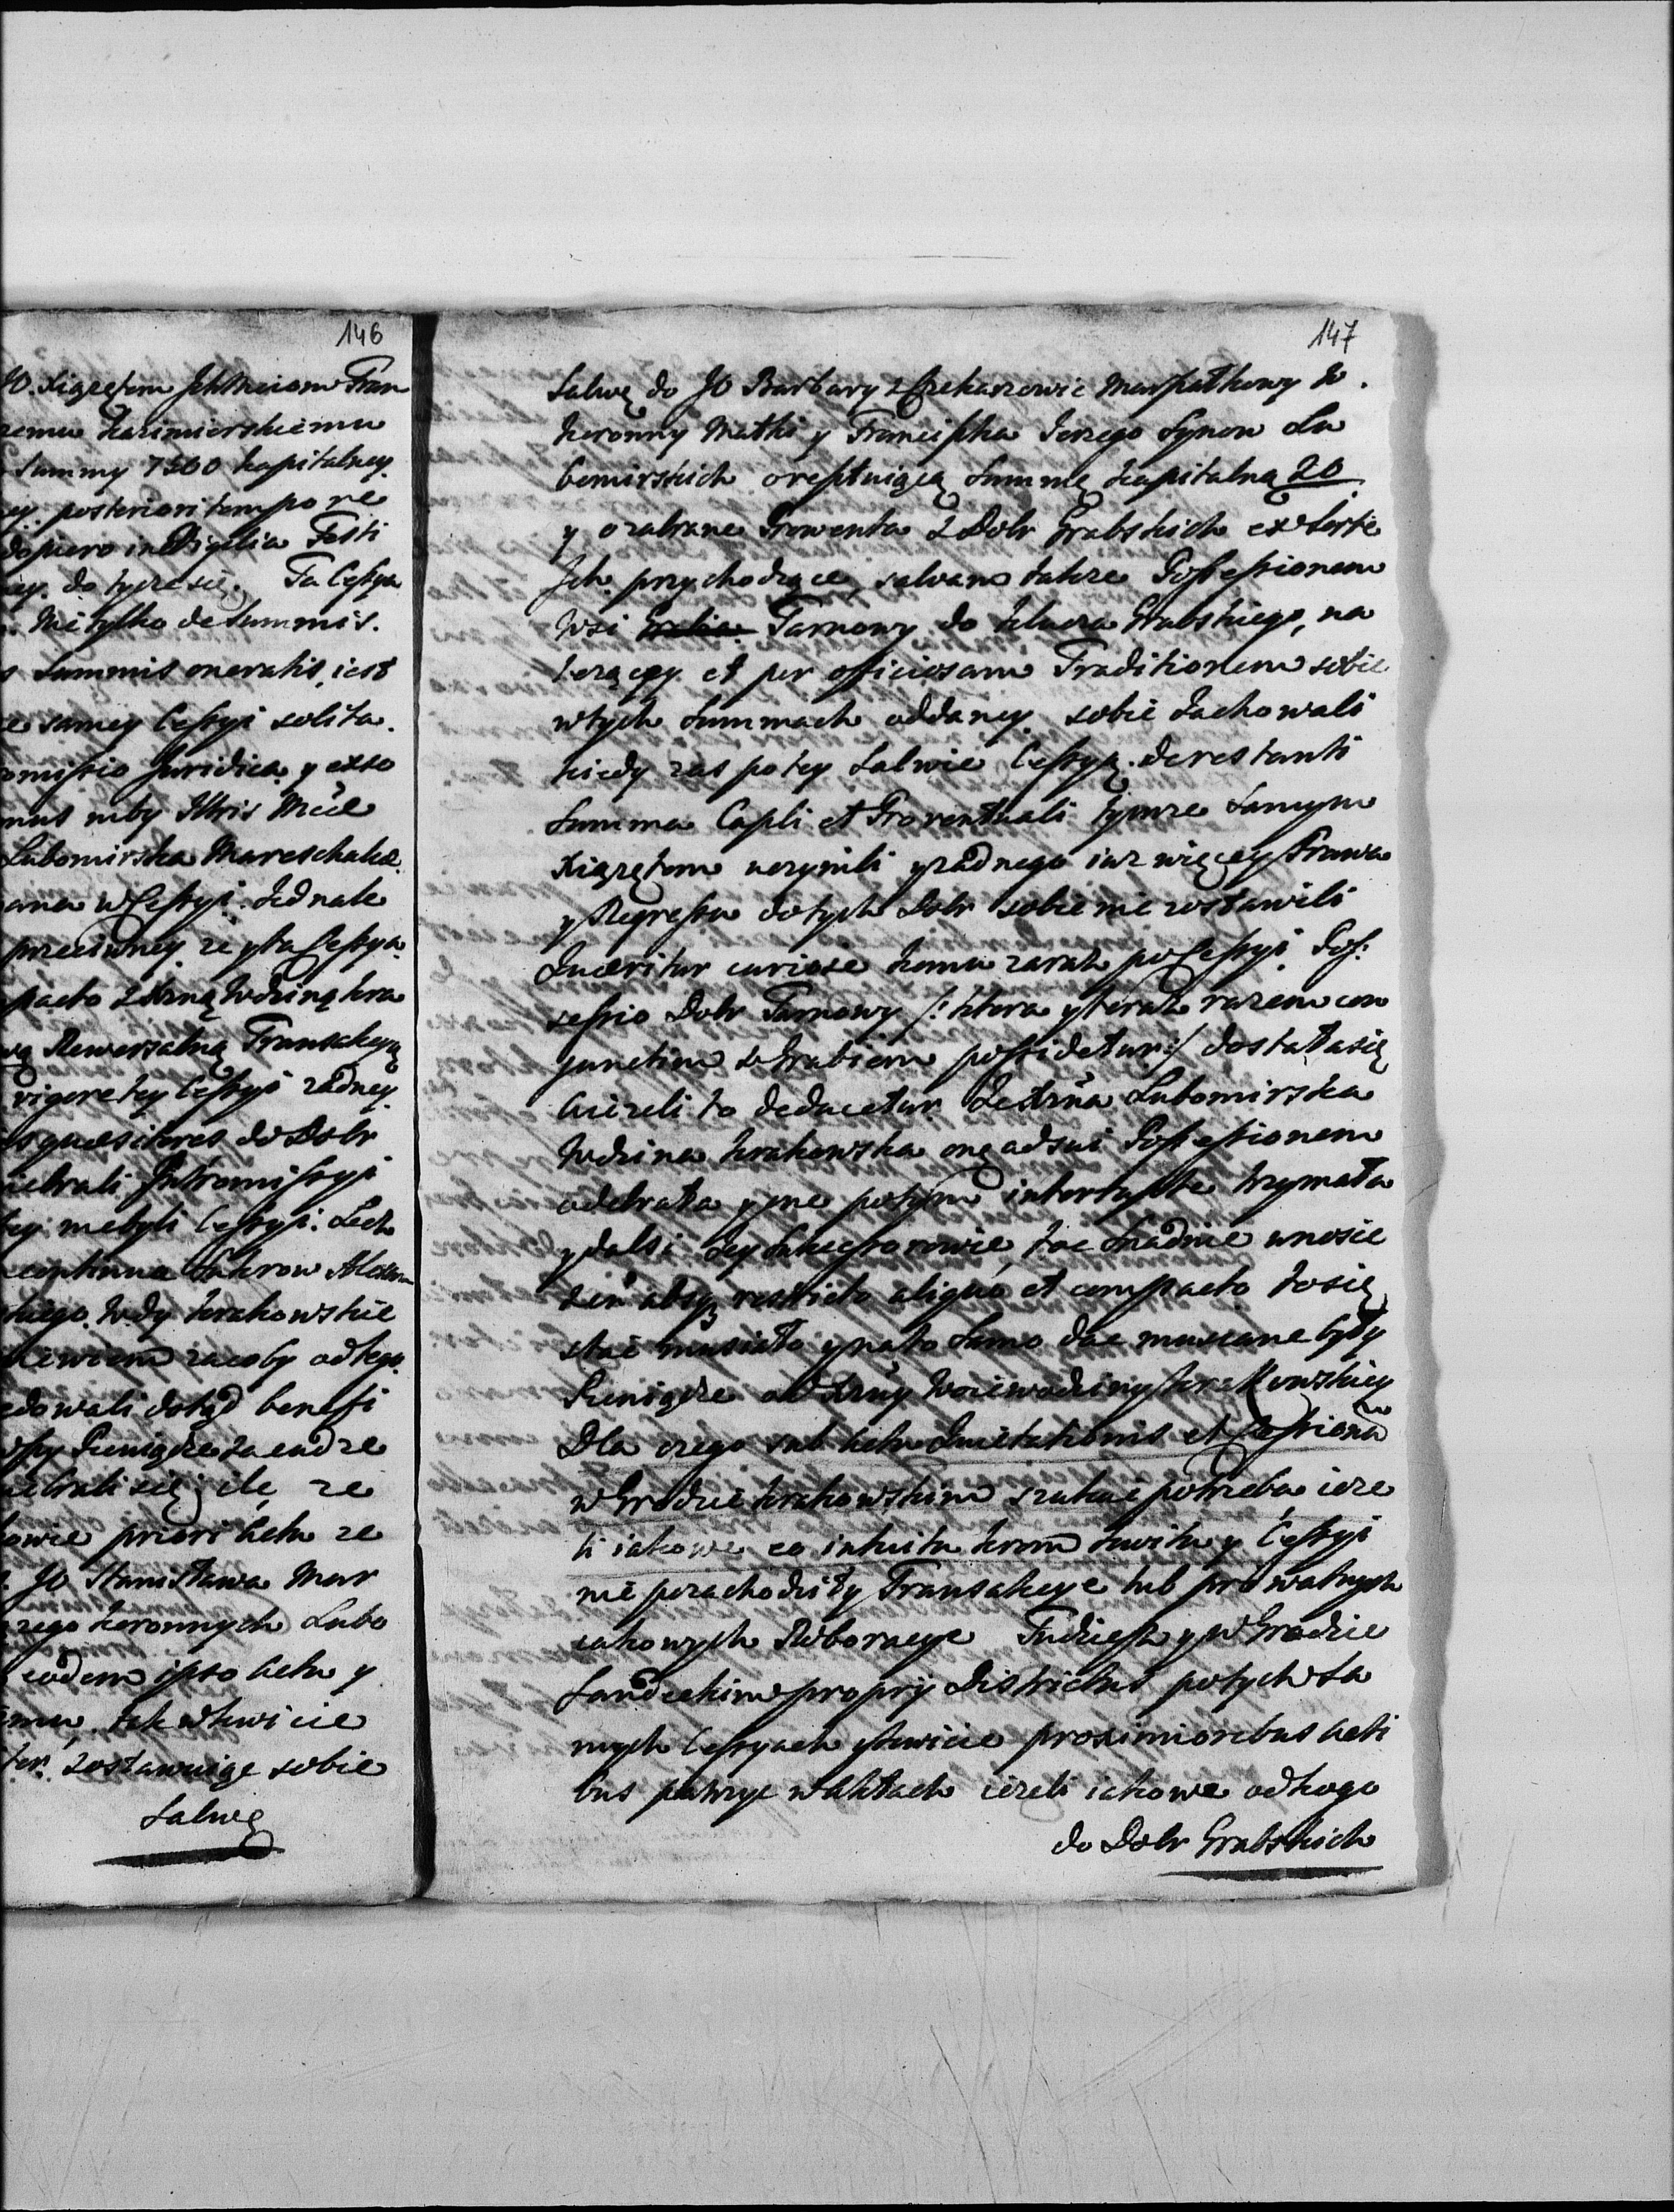 146
JO. Xiążętom Ichmciom Fran
remu Kazimierskiemu
Summy 7500 kapitalney
ey. posteriori tempore
dopiero in Vigilia Festi
ey. do tycze się. Ta Cessya
Nie tylko de Summis.
s Summis oneratis, iest
e samey Cessyi solita.
omissio Juridica, y exso
nus niby Ittris Mciae
Lubomirska Mareschalcae
ana w Cessyi. Jednak
przeciwney. że y ta Cessya.
pacto z Xżną Wdziną kra
wą Rewersalną Transakcyą
vigore tey Cessyi żadney
quaesitores do Dobr
iebrali Intromissyi
tey. nie byli Cessyi. Lecz
continua Sukrow Alexan
skiego. Wdy krakowskie
niewiem za coby od tego.
edowali dotąd benefi
wszy Pieniądze za cudze
nebrali się; ile, że
owie priori Actu ze
JO Stanisława Mar
rego koronnych Lubo
eodem ipso Actu y
mu, tak w kwicie
ter. zostawuiąc sobie
Salwę
147
Salwę do JO Barbary z Marszałkowy W.
koronny Matki y Franciszka Jerzego Synow Lu
bomirskich oresztuiącą Summę kapitalną 20
y o zabrane Prowenta z Dobr Grabskich ex Sorte
Ich. przychodzące, salvam także Possessionem
Wsi Tarnowy. do klucza Grabskiego, na
leżącey. et per officiosam Traditionem sobie
w tych Summach oddaney. sobie Zachowali
kiedy zas po tey Salwie Cessyą. de restanti
Summa Capli et Proventuali tymże Samym
Xiążętom uczynili y żadnego iuż więcey Prawa
y Regressu do tych Dobr sobie nie zostawili
Quaeritur curiose komu zaraz po Cessyi. Pos:
sessio Dobr Tarnowy /: ktora y teraz razem con
junctim z Grabiem possidetur:/ dostała się
Ażeżeli to deducetur. Że Xżna Lubomirska
Wdzina krakowska onę ad sui Possessionem
odebrała y one potym trzymała
y dalsi Jey Sukcessorowie, toć Snadnie wnosic
zie absq, restricto aliquo et compacto to się
stać musiało y na to Samo dać muszane były
Pieniądze od Xżny Woiewodziny krakowskiey
Dla czego sub Actu Quietationis et Cessionu
w Grodzie krakowskim szukać potrzeba ieże
li iakowe eo intuitu krom kwitu y Cessyi
nie przechodziły Transakcye lub prywatnych
iakowych Roboracye Tudziesz y w Grodzie
Sandeckim proprij Districtus po tych Sa
mych Cessyach y kwicie proximioribus Acti
bus patrzyć w Aktach ieżeli iakowe od kogo
do Dobr Grabskich